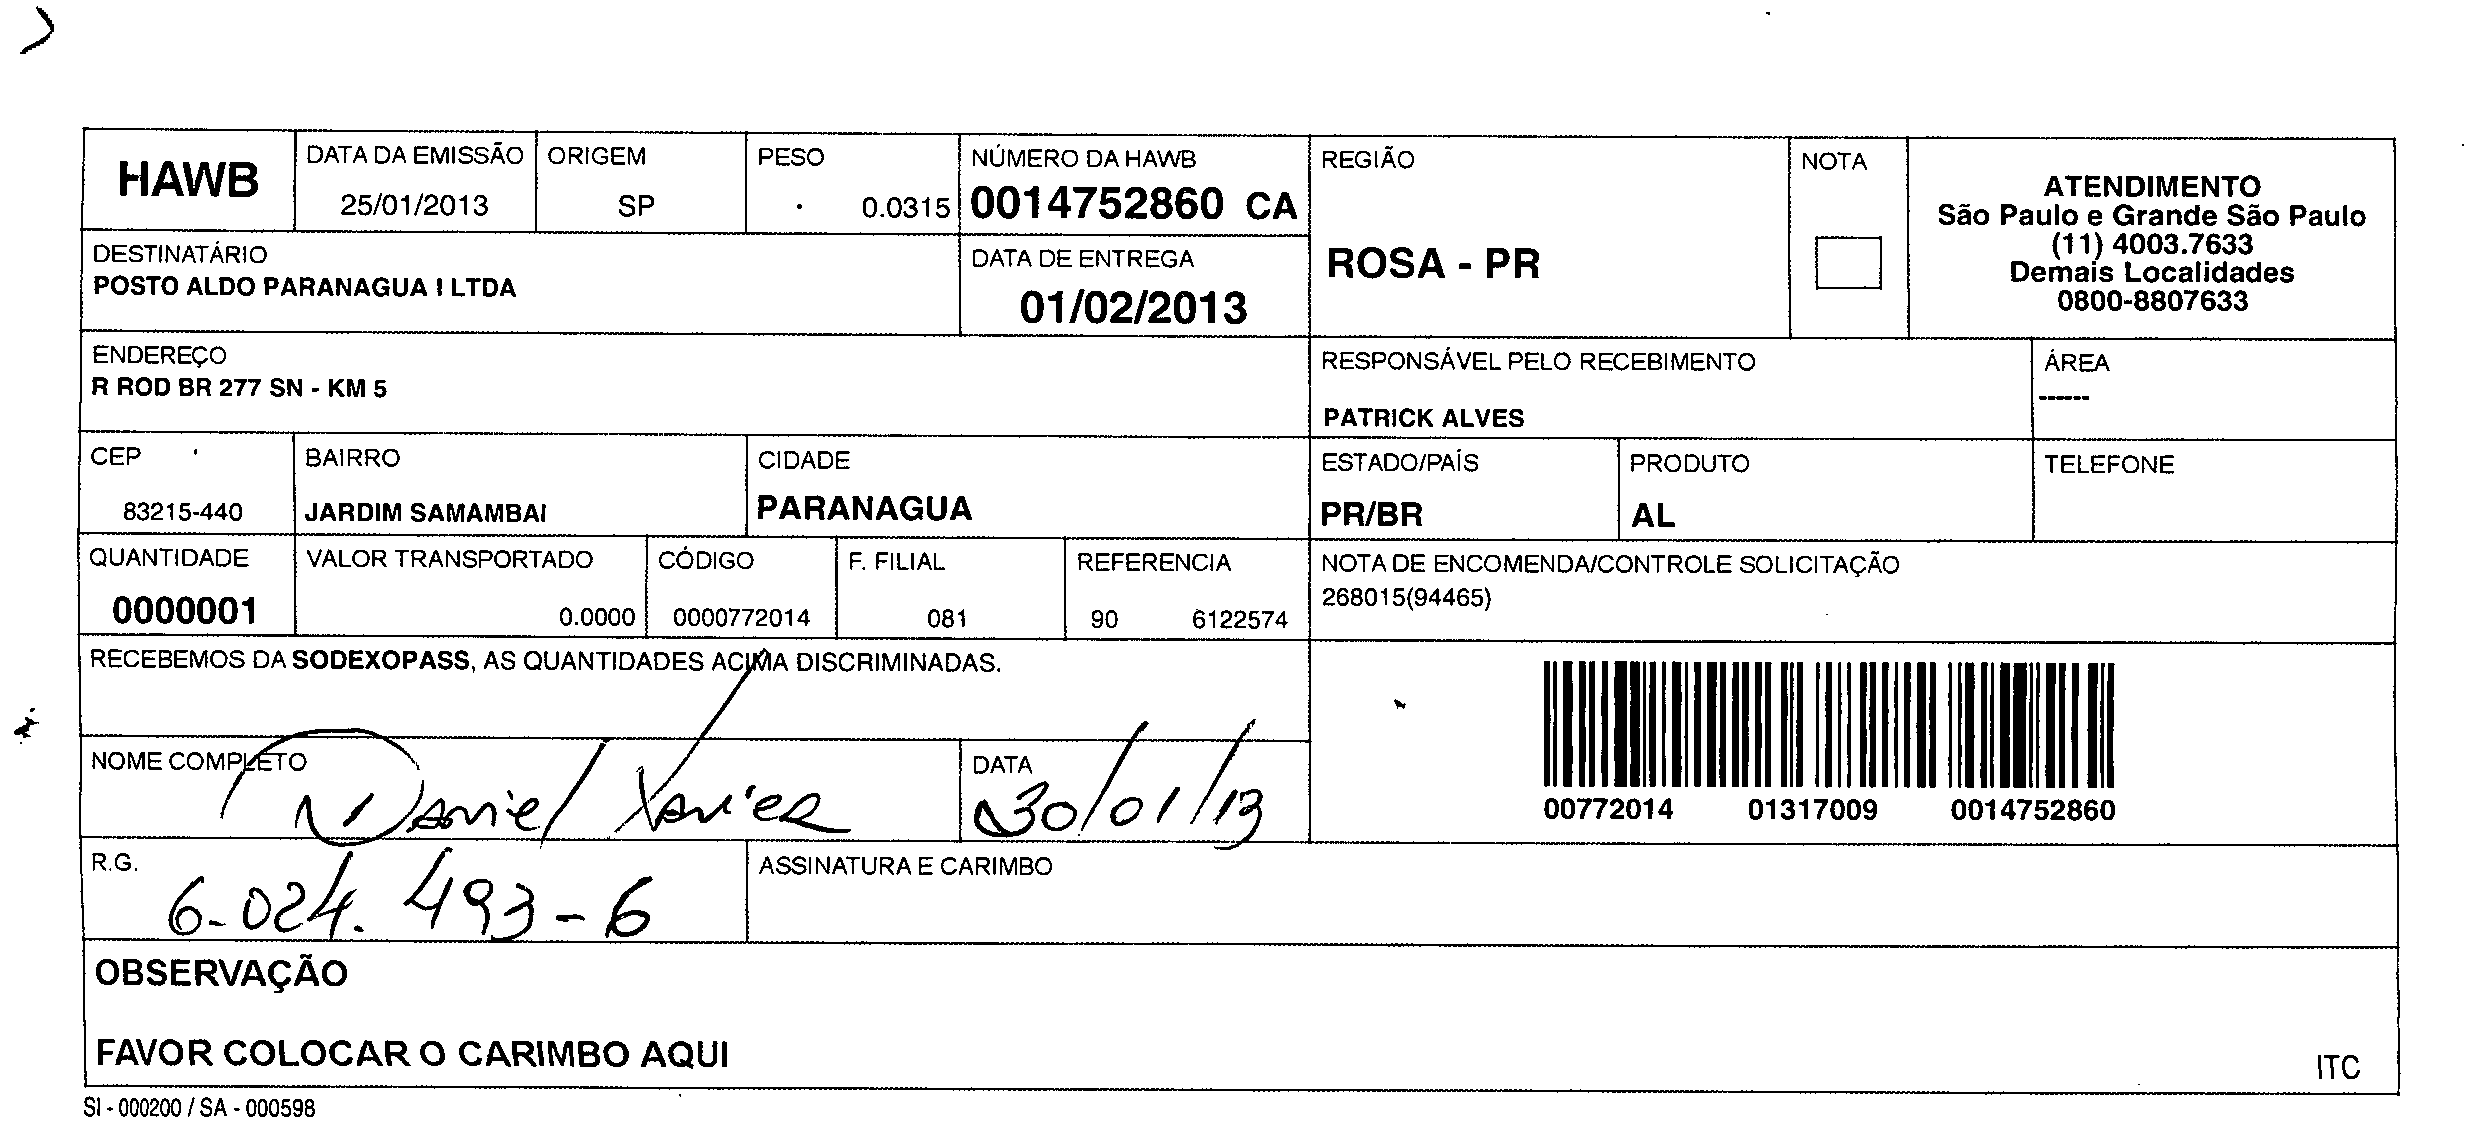 HAWB
DATA DA EMISSÃO
25/01/2013
ORIGEM
SP
PESO
0.0315
NÚMERO DA HAWB
0014752860 CA
REGIÃO
ROSA - PR
NOTA
ATENDIMENTO
São Paulo e Grande São Paulo
(11) 4003.7633
Demais Localidades
0800-8807633
DESTINATÁRIO
POSTO ALDO PARANAGUA I LTDA
DATA DE ENTREGA
01/02/2013
ENDEREÇO
R ROD BR 277 SN - KM 5
RESPONSÁVEL PELO RECEBIMENTO
PATRICK ALVES
ÁREA
------
CEP
83215-440
BAIRRO
JARDIM SAMAMBAI
CIDADE
PARANAGUA
ESTADO/PAÍS
PR/BR
PRODUTO
AL
TELEFONE
QUANTIDADE
0000001
VALOR TRANSPORTADO
0.0000
CÓDIGO
0000772014
F. FILIAL
081
REFERENCIA
90 6122574
NOTA DE ENCOMENDA/CONTROLE SOLICITAÇÃO
268015(94465)
RECEBEMOS DA SODEXOPASS, AS QUANTIDADES ACIMA DISCRIMINADAS.
NOME COMPLETO
Daniel Xavier
DATA
30/01/13
00772014 01317009 0014752860
R.G.
6-024.493-6
ASSINATURA E CARIMBO
OBSERVAÇÃO
FAVOR COLOCAR O CARIMBO AQUI
ITC
SI - 000200 / SA - 000598